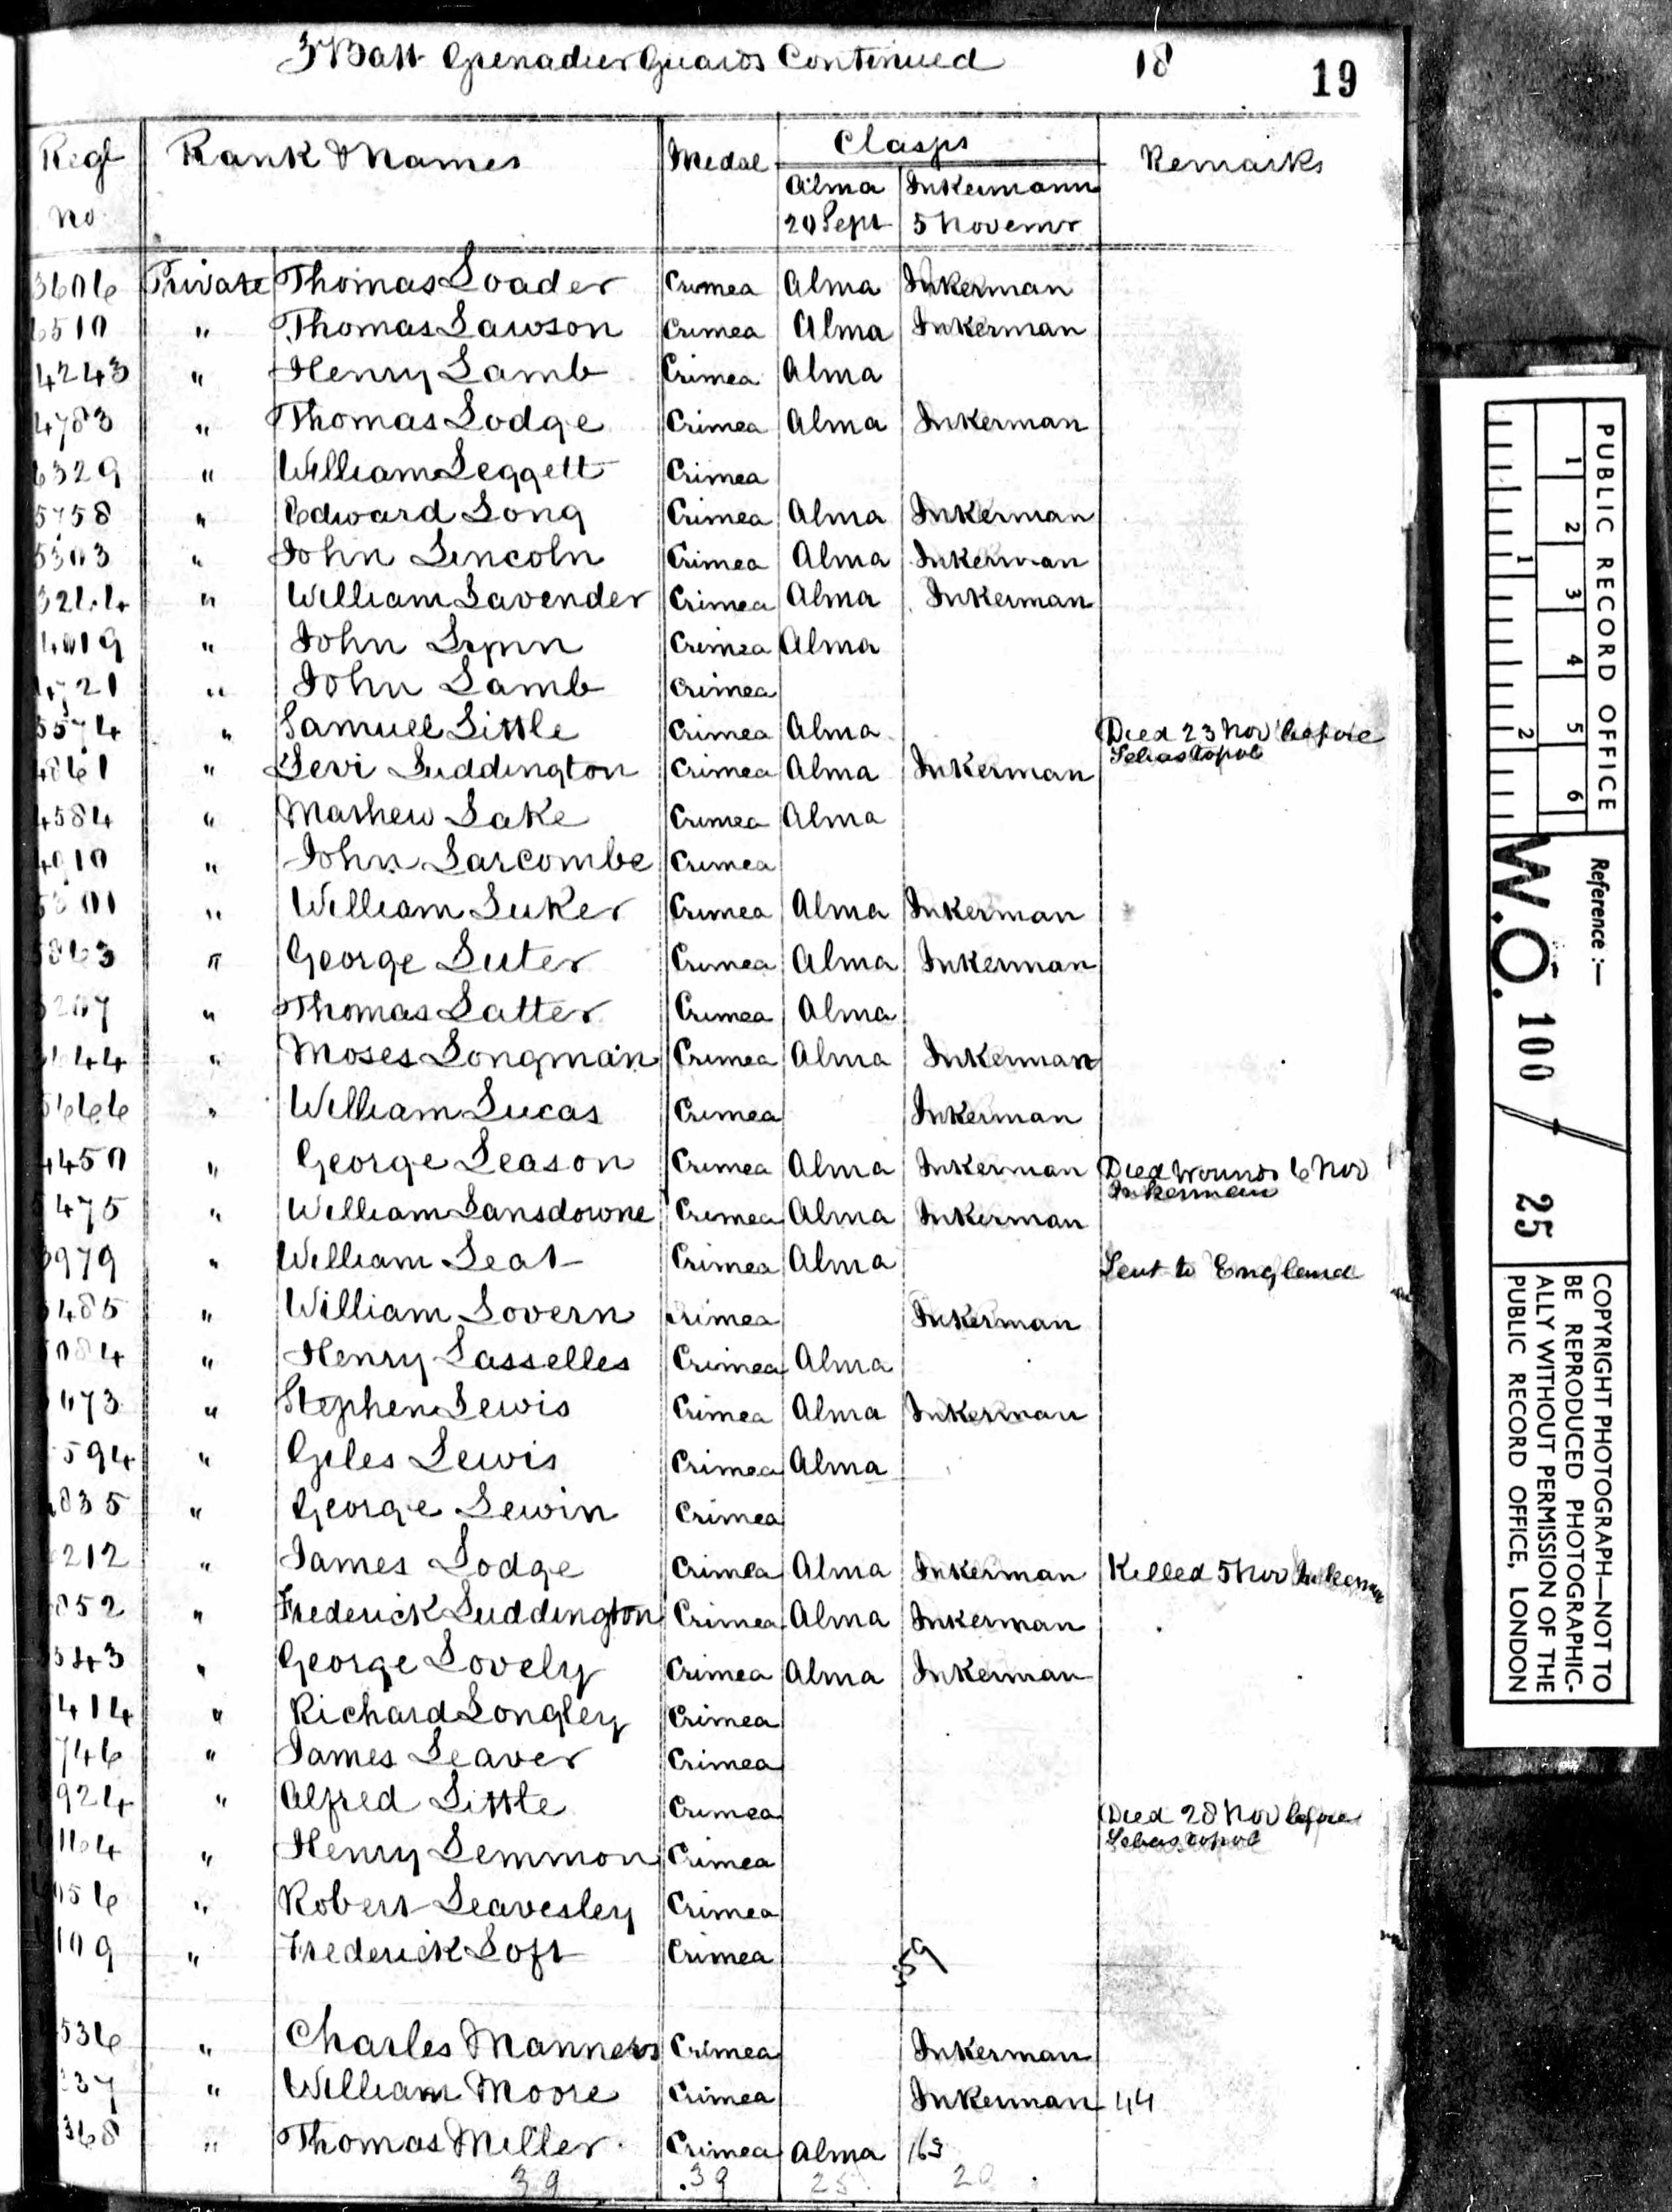 3 Batt Grenadier Guards Continued 18 19
Regl No Rank & Names Medal Clasps Remarks
Alma 20 Sept Inkermann 5 Novemr
3606 Private Thomas Loader Crimea Alma Inkerman
6510 " Thomas Lawson Crimea Alma Inkerman
4243 " Henry Lamb Crimea Alma
4783 " Thomas Lodge Crimea Alma Inkerman
6329 " William Leggett Crimea
5758 " Edward Long Crimea Alma Inkerman
5303 " John Lincoln Crimea Alma Inkerman
" William Lavender Crimea Alma Inkerman
" John Lynn Crimea Alma
" John Lamb Crimea
5574 " Samuel Little Crimea Alma Died 23 Nov before Sebastopol
4861 " Levi Luddington Crimea Alma Inkerman
4584 " Mathew Lake Crimea Alma
4910 " John Larcombe Crimea
" William Luker Crimea Alma Inkerman
" George Luter Crimea Alma Inkerman
" Thomas Latter Crimea Alma
" Moses Longman Crimea Alma Inkerman
5666 " William Lucas Crimea Inkerman
4450 " George Leason Crimea Alma Inkerman Died Wounds 6 Nov Inkerman
475 " William Lansdowne Crimea Alma Inkerman
3979 " William Leat Crimea Alma Sent to England
485 " William Lovern Crimea Inkerman
084 " Henry Lasselles Crimea Alma
073 " Stephen Lewis Crimea Alma Inkerman
594 " Giles Lewis Crimea Alma
835 " George Lewin Crimea
212 " James Lodge Crimea Alma Inkerman Killed 5 Nov Inkerman
852 " Frederick Luddington Crimea Alma Inkerman
543 " George Lovely Crimea Alma Inkerman
414 " Richard Longley Crimea
746 " James Leaver Crimea
924 " Alfred Little Crimea Died 28 Nov before Sebastopol
1164 " Henry Lemmon Crimea
056 " Robert Leavesley Crimea
109 " Frederick Loft Crimea 59
536 " Charles Manners Crimea Inkerman
37 " William Moore Crimea Inkerman 44
368 " Thomas Miller Crimea Alma 163
39 39 25 20
PUBLIC RECORD OFFICE
1 2 3 4 5 6
1 2
Reference :—
W.O. 100 / 25
COPYRIGHT PHOTOGRAPH—NOT TO
BE REPRODUCED PHOTOGRAPHIC-
ALLY WITHOUT PERMISSION OF THE
PUBLIC RECORD OFFICE, LONDON